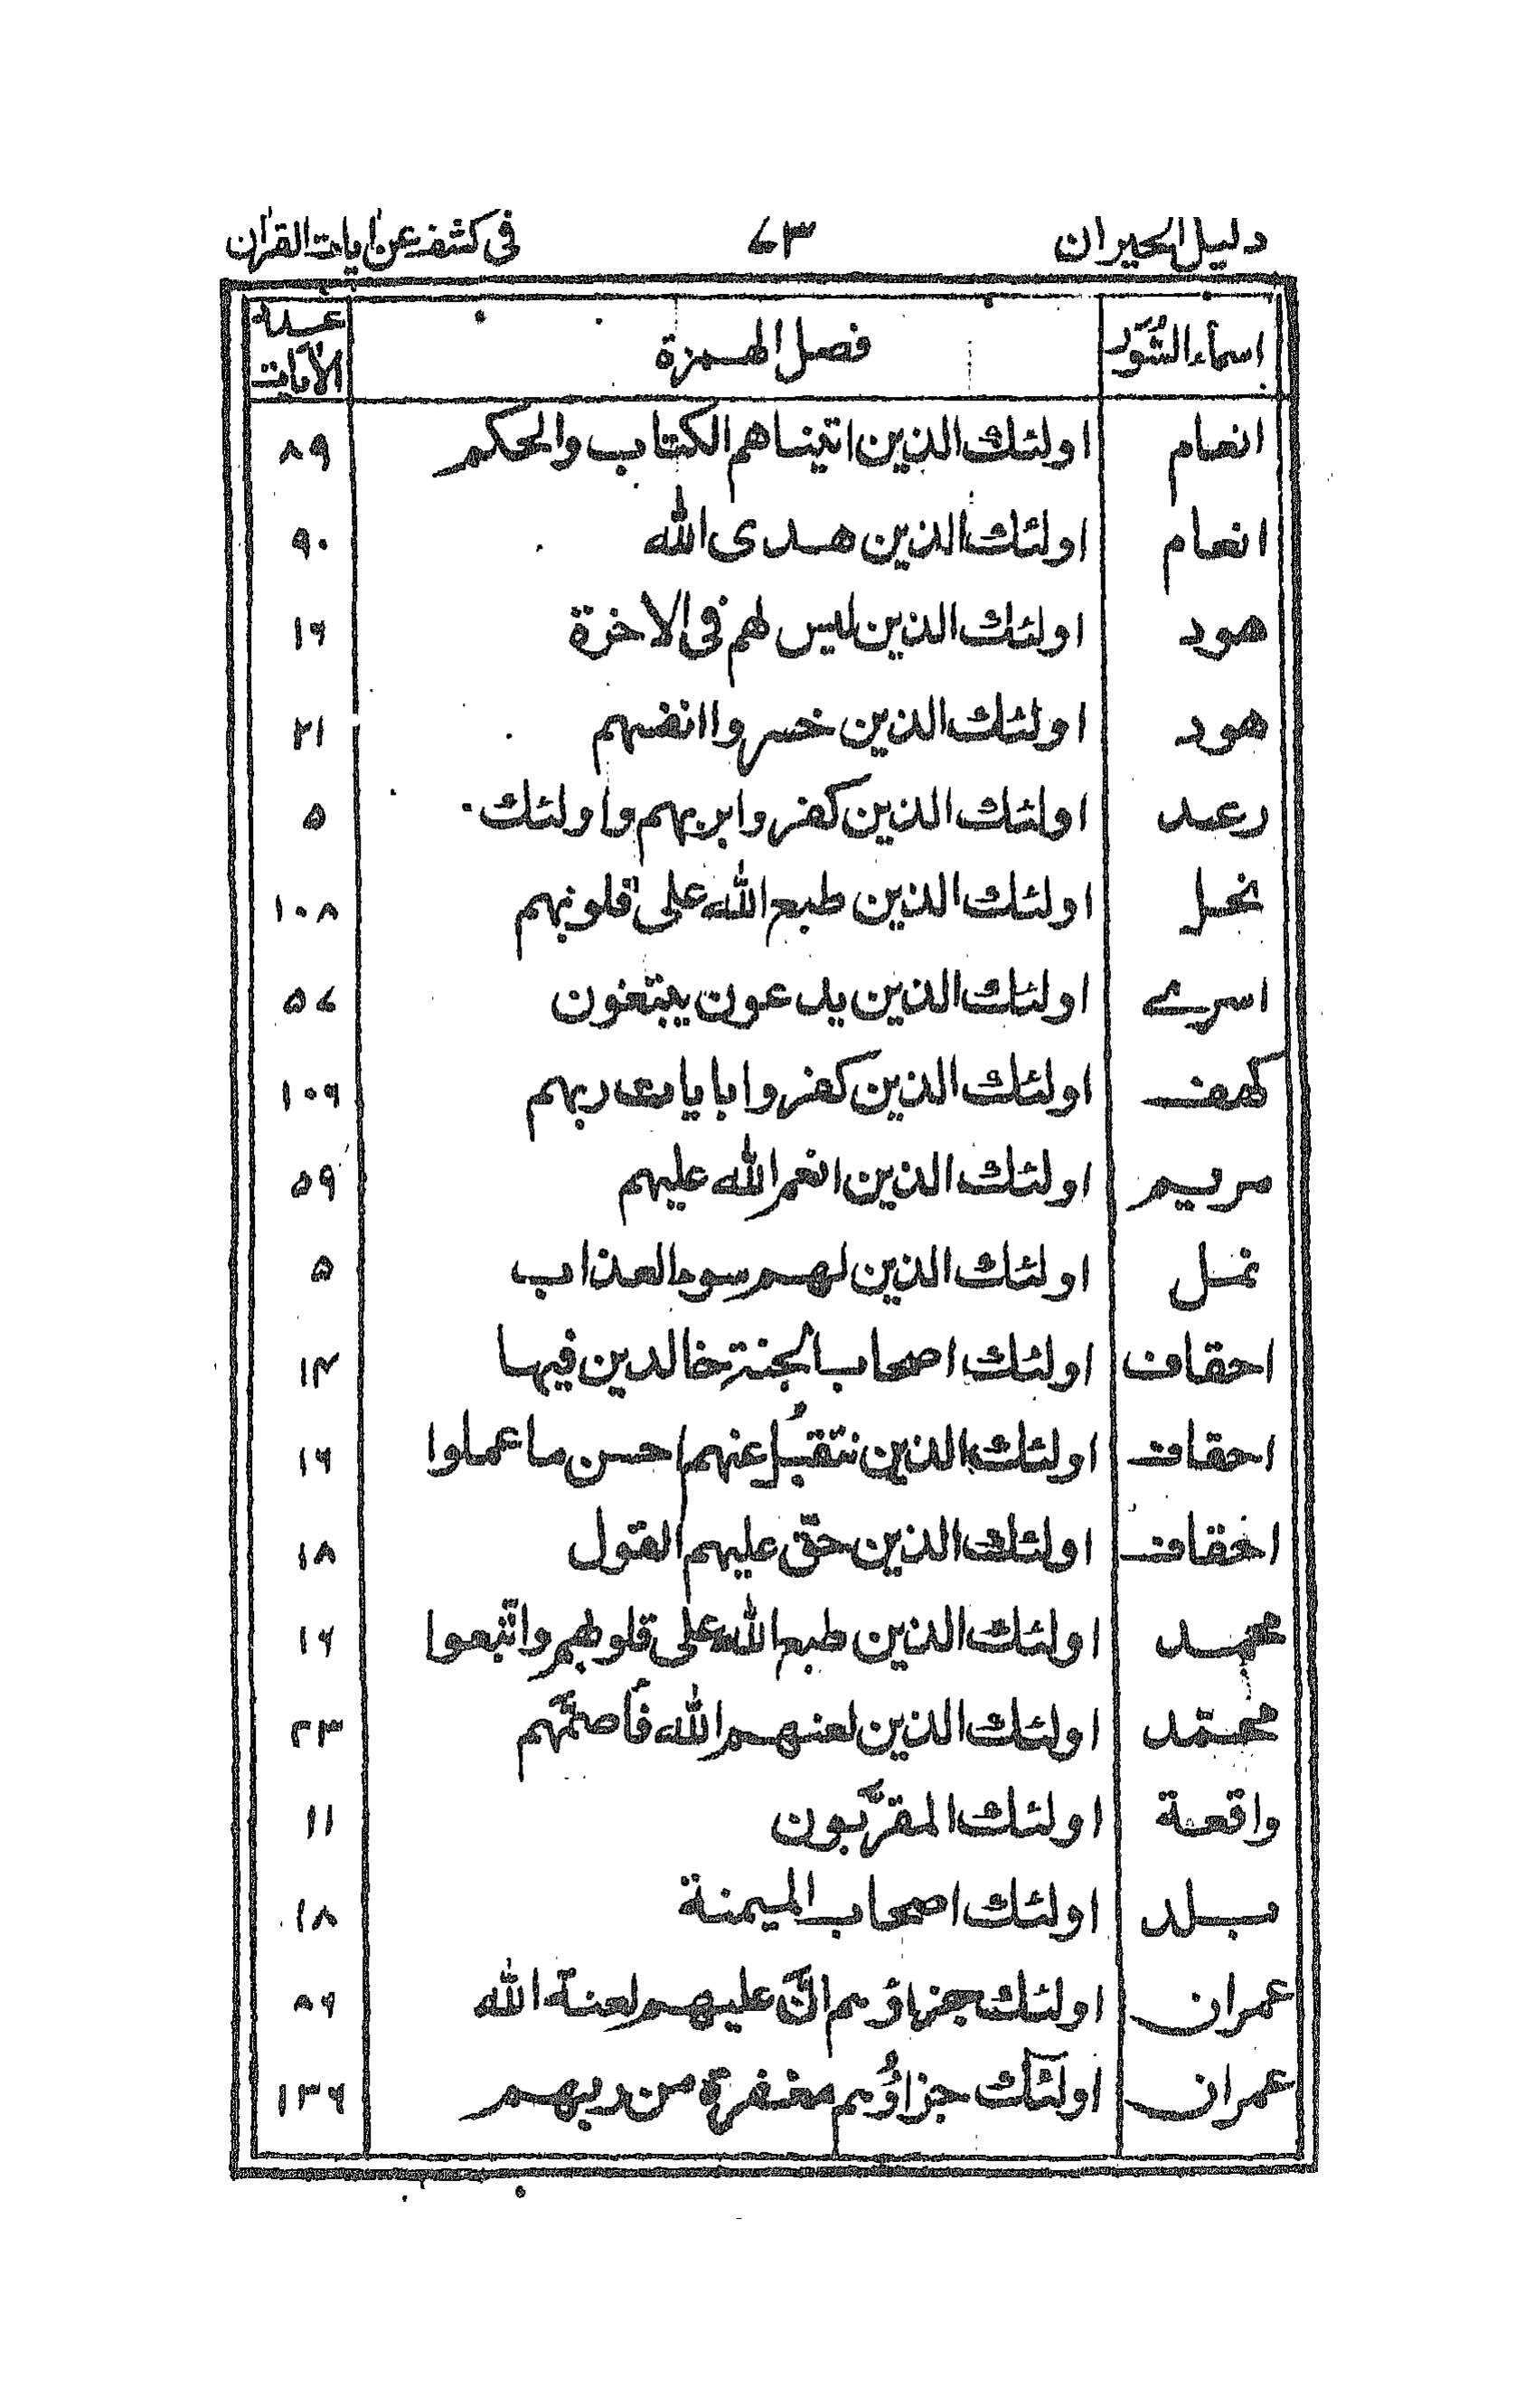 دليل الحيران ٧٣ في كشف عن ايات القران
اسماء السُّوَر فصل الهمزة عدة الآيات
انعام اولئك الذين اتيناهم الكتاب والحكم ٨٩
انعام اولئك الذين هدى الله ٩٠
هود اولئك الذين ليس لهم فى الاخرة ١٦
هود اولئك الذين خسروا انفسهم ٢١
رعد اولئك الذين كفروا بربهم واولئك ٥
نحل اولئك الذين طبع الله على قلوبهم ١٠٨
اسرے اولئك الذين يدعون يبتغون ٥٧
كهف اولئك الذين كفروا بايات ربهم ١٠٦
مريم اولئك الذين انعم الله عليهم ٥٩
نمل اولئك الذين لهم سوء العذاب ٥
احقاف اولئك اصحاب الجنة خالدين فيها ١٤
احقاف اولئك الذين نتقبُل عنهم احسن ما عملوا ١٦
اخقاف اولئك الذين حقّ عليهم القول ١٨
محمد اولئك الذين طبع الله على قلوبهم واتّبعوا ١٦
محمّد اولئك الذين لعنهم الله فأصمّهم ٢٣
واقعة اولئك المقرّبون ١١
بلد اولئك اصحاب الميمنة ١٨
عمران اولئك جزاؤهم انّ عليهم لعنة الله ٨٦
عمران اولٓئك جزاؤُهم مغفرة من ربهم ١٣٦